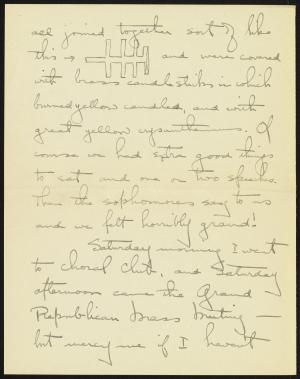 all joined together sort of like
this → and were covered
with brass candlesticks in which
burned yellow candles, and with
great yellow crysanthemums. Of
course we had extra good things
to eat and one or two speeches.
Then the sophomores sang to us
and we felt horribly grand!
Saturday morning I went
to Choral Club, and Saturday
afternoon came the Grand
Republican Mass Meeting —
but mercy me if I haven't